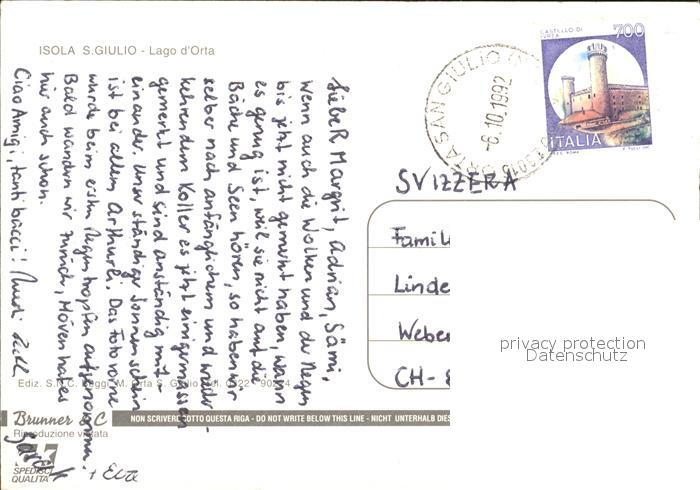 ISOLA S.GIULIO - Lago d'Orta
CASTELLO DI
700
ITALIA
ORTA SAN GIULIO
-9.10.1992
SVIZZERA
Famil
Linde
Weber
CH-8
Liebe R Margrit, Adrian, Sämi,
Wenn auch die Wolken und der Regen
bis jetzt nicht gemerkt haben, wann
es genug ist, weil sie nicht auf die
Bäche und Seen hören, so haben wir
selber nach anfänglichem und wieder-
kehrendem Koller es jetzt einigermassen
gemerkt und sind anständig mit-
einander. Unser ständiger Sonnenschein
ist bei allem Arthurli. Das Foto vorne
wurde beim ersten Regentropfen aufgenommen.
Bald wandern wir zurück,
hier auch schon.
Ciao Amici, tanti bacci!
+ Eva
Sarah
Ediz. S.N.C. Poggi M. Orta S. Giulio Tel. 0322 - 90224
Brunner & C
Riproduzione vietata
NON SCRIVERE SOTTO QUESTA RIGA - DO NOT WRITE BELOW THIS LINE - NICHT UNTERHALB DIES
SPEDISCI
QUALITA'
privacy protection
Datenschutz